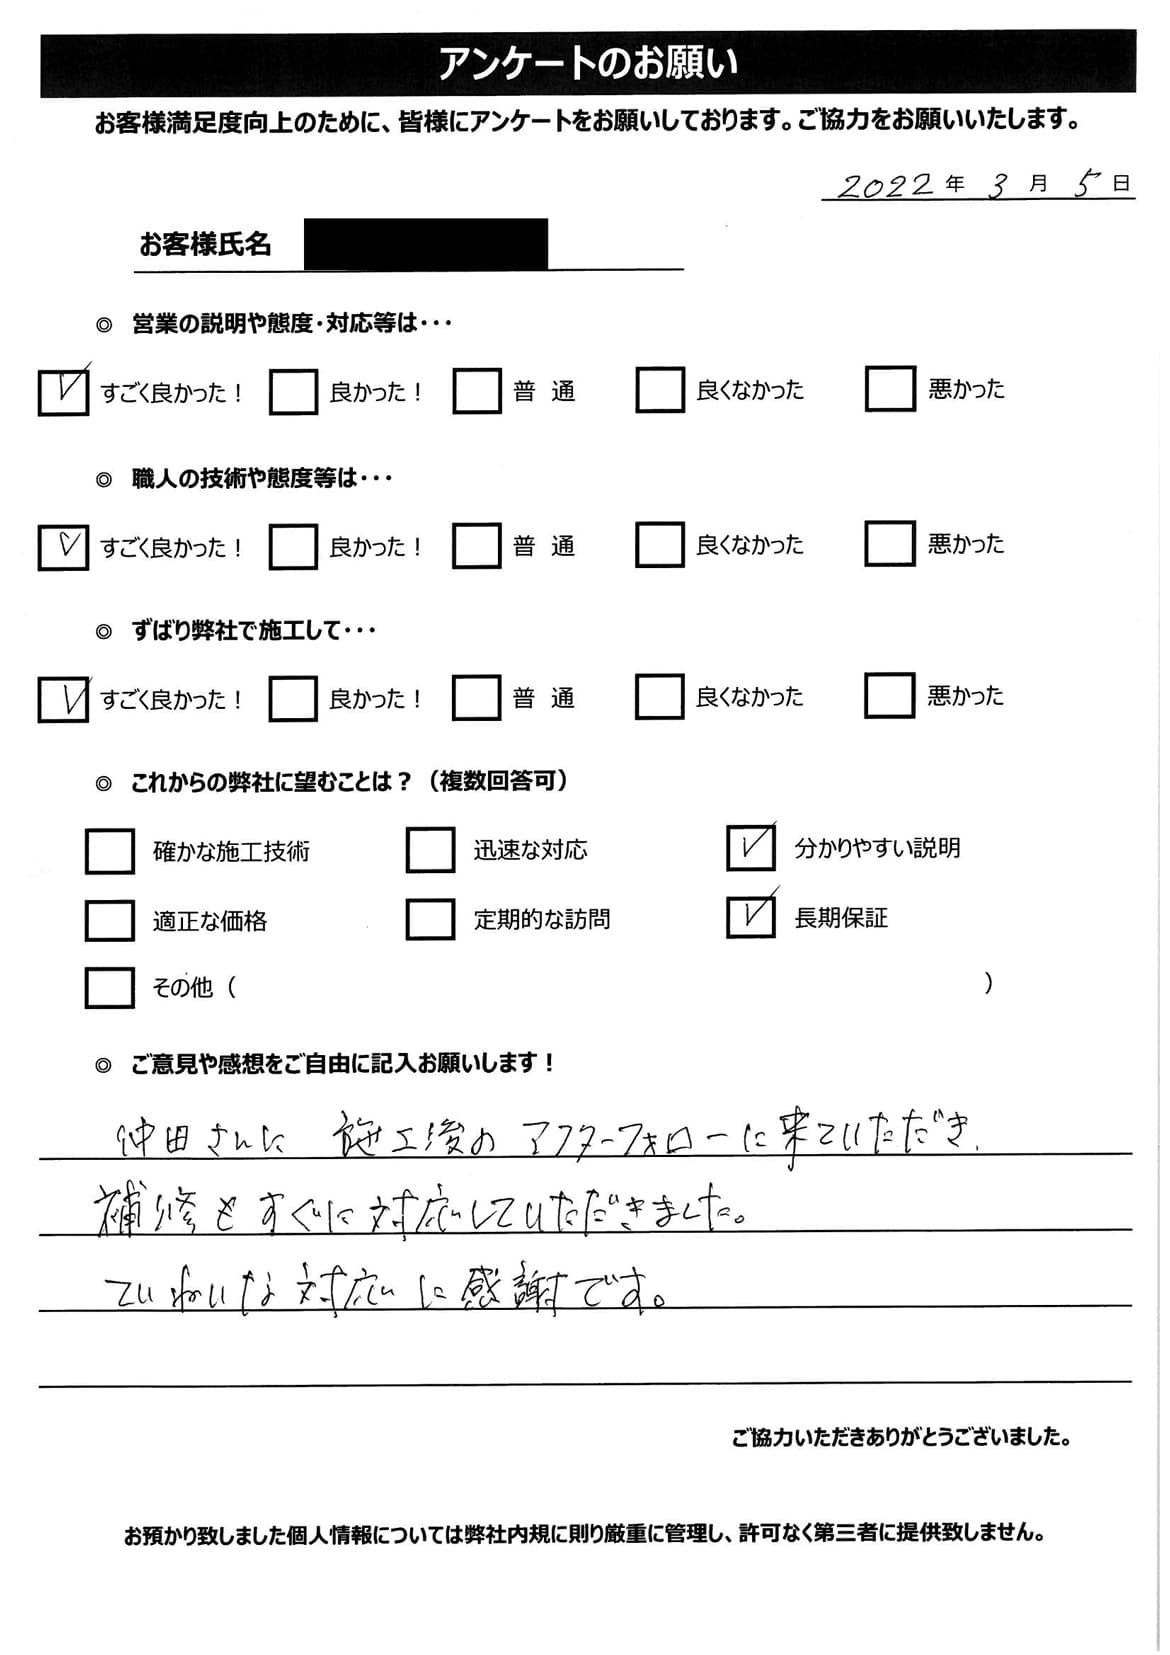 アンケートのお願い
お客様満足度向上のために、皆様にアンケートをお願いしております。ご協力をお願いいたします。
2022年 3月 5日
お客様氏名
◎ 営業の説明や態度・対応等は・・・
すごく良かった！ 良かった！ 普 通 良くなかった 悪かった
◎ 職人の技術や態度等は・・・
すごく良かった！ 良かった！ 普 通 良くなかった 悪かった
◎ ずばり弊社で施工して・・・
すごく良かった！ 良かった！ 普 通 良くなかった 悪かった
◎ これからの弊社に望むことは？（複数回答可）
確かな施工技術 迅速な対応 分かりやすい説明
適正な価格 定期的な訪問 長期保証
その他（ ）
◎ ご意見や感想をご自由に記入お願いします！
仲田さんに 施工後のアフターフォローに来ていただき、
補修もすぐに対応していただきました。
ていねいな対応に感謝です。
ご協力いただきありがとうございました。
お預かり致しました個人情報については弊社内規に則り厳重に管理し、許可なく第三者に提供致しません。